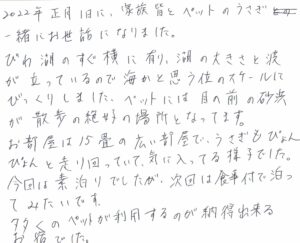 2022年 正月1日に、家族皆とペットのうさぎ
一緒にお世話になりました。
びわ湖のすぐ横に有り、湖の大きさと波
が立っているので海かと思う位のスケールに
びっくりしました。ペットには目の前の砂浜
が散歩の絶好の場所となってます。
お部屋は15畳の広い部屋で、うさぎもぴょん
ぴょんと走り回っていて、気に入ってる様子でした。
今回は素泊りでしたが、次回は食事付で泊っ
てみたいです。
多くのペットが利用するのが納得出来る
お宿でした。